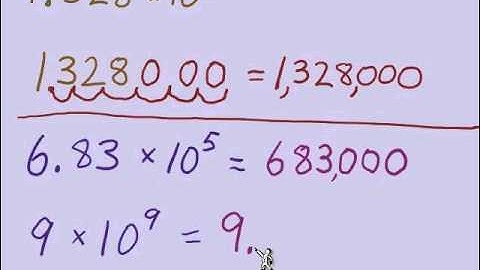 1.328000 = 1,328,000
6.83 × 10⁵ = 683,000
9 × 10⁹ = 9.